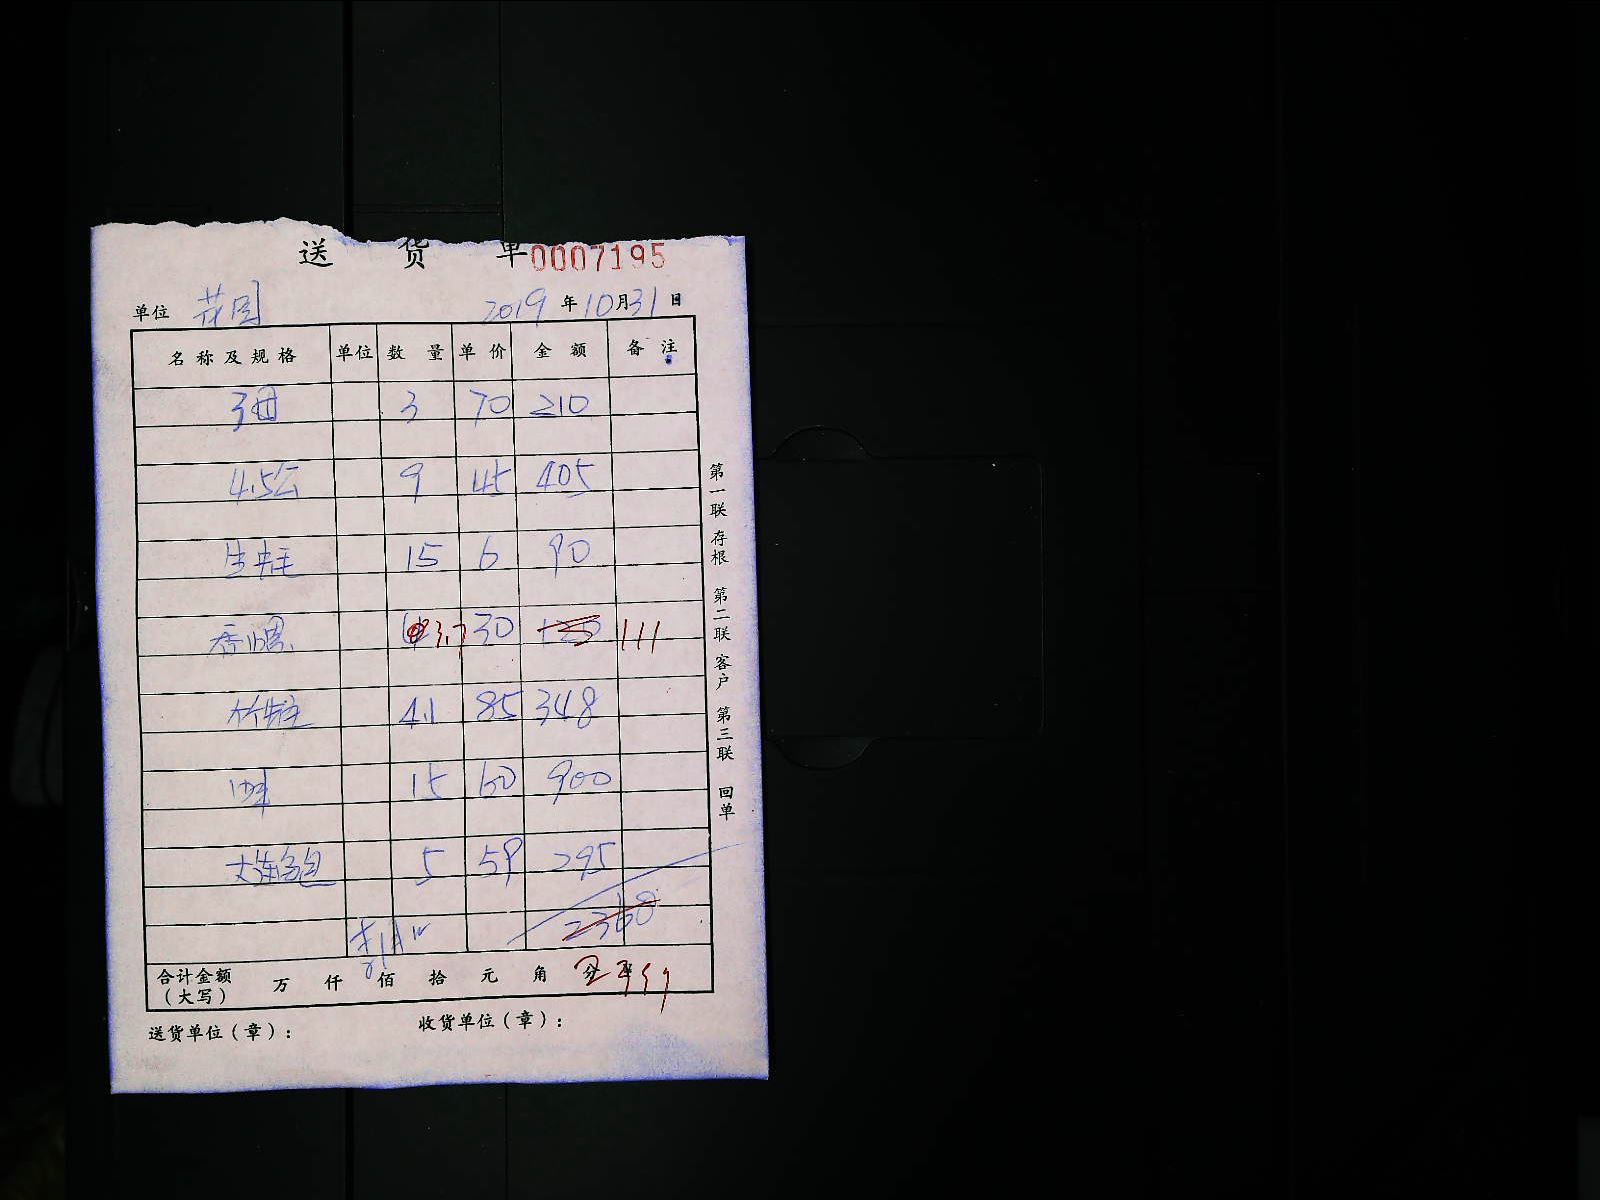 送 货 单 0007195
单位 花园 2019 年 10 月 31 日
名称及规格 单位 数量 单价 金额 备注
3母 3 70 210
4.5公 9 45 405
生蚝 15 6 90
3.7 30 111
4.1 85 348
15 60 900
大连鲍 5 59 295
2368
合计金额(大写) 万 仟 佰 拾 元 角 分 2359
送货单位(章): 收货单位(章):
第一联 存根 第二联 客户 第三联 回单